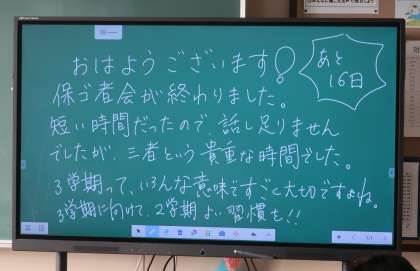 おはようございます!
あと
16日
保ゴ者会が終わりました。
短い時間だったので、話し足りません
でしたが、三者という貴重な時間でした。
3学期って、いろんな意味ですごく大切ですよね。
3学期に向けて、2学期よい習慣を!!
1/1